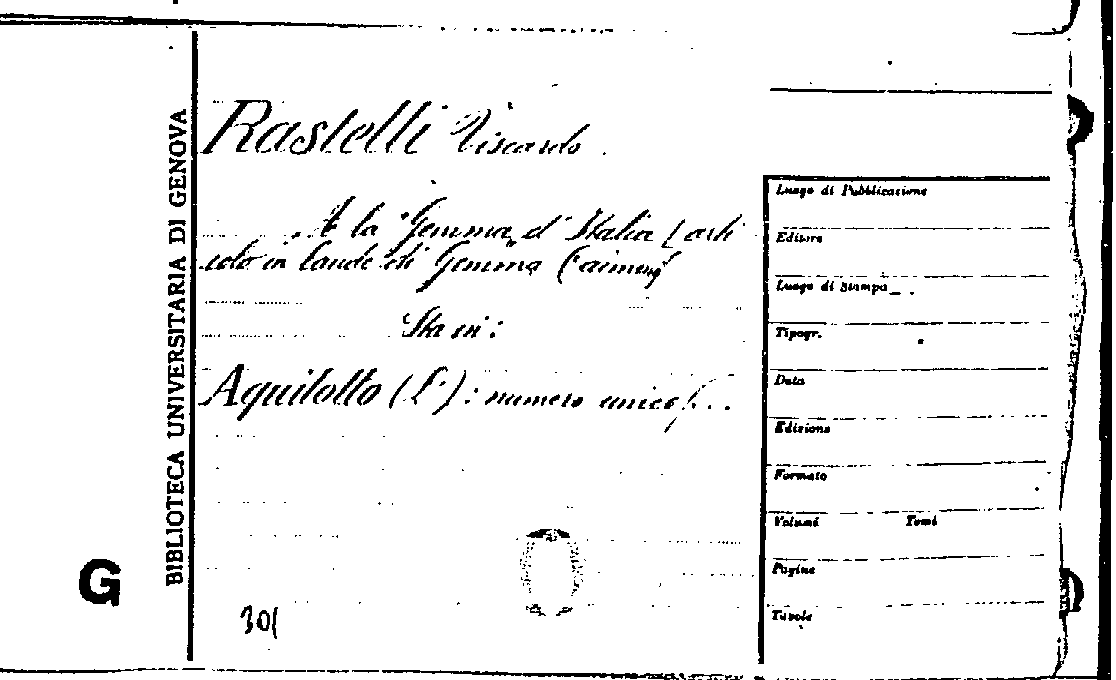 BIBLIOTECA UNIVERSITARIA DI GENOVA
G
Rastelli Viscardo
A la "Gemma" d'Italia [arti
colo in laude di Gemma
Sta in:
Aquilotto (L'): numero unico
301
Luogo di Pubblicazione
Editore
Luogo di Stampa
Tipogr.
Data
Edizione
Formato
Volumi Tomi
Pagine
Tavole